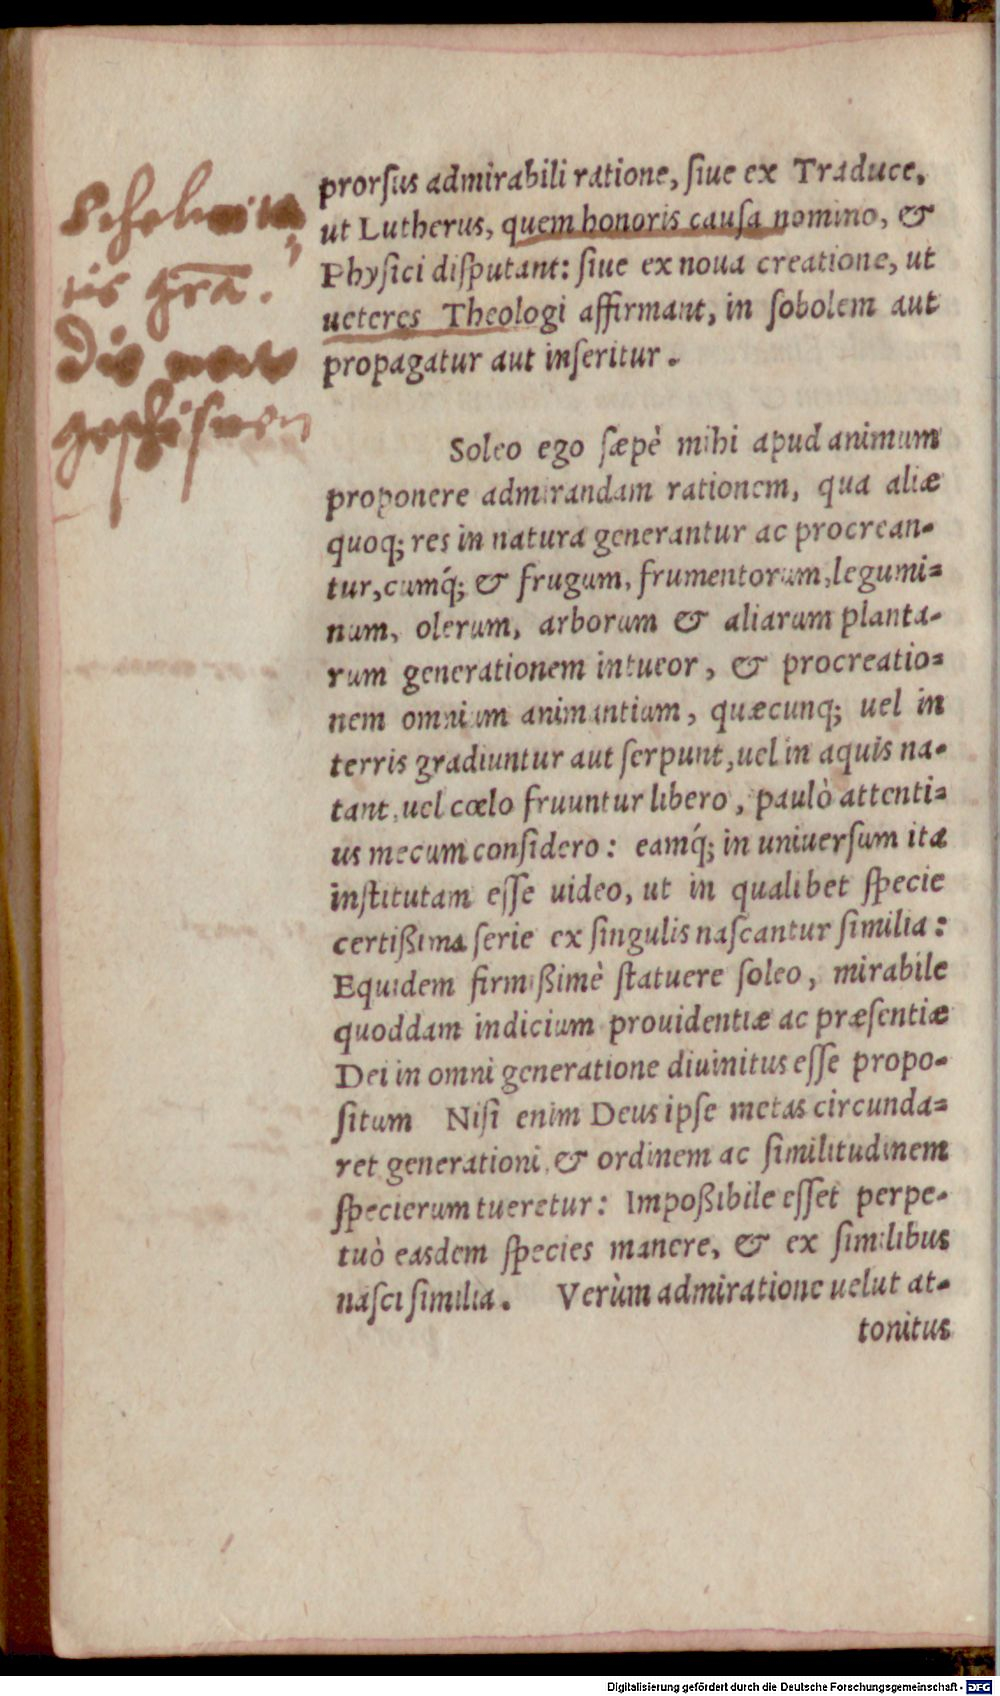 tis grã.
prorſus admirabili ratione, ſiue ex Traduce,
ut Lutherus, quem honoris cauſa nomino, &
Phyſici diſputant: ſiue ex noua creatione, ut
ueteres Theologi affirmant, in ſobolem aut
propagatur aut inſeritur.
Soleo ego ſæpè mihi apud animum
proponere admirandam rationem, qua aliæ
quoq; res in natura generantur ac procrean-
tur, cumq́; & frugum, frumentorum, legumi-
num, olerum, arborum & aliarum planta-
rum generationem intueor, & procreatio-
nem omnium animantium, quæcunq; uel in
terris gradiuntur aut ſerpunt, uel in aquis na-
tant, uel cœlo fruuntur libero, paulò attenti-
us mecum conſidero: eamq́; in uniuerſum ita
inſtitutam eſſe uideo, ut in qualibet ſpecie
certißima ſerie ex ſingulis naſcantur ſimilia:
Equidem firmißimè ſtatuere ſoleo, mirabile
quoddam indicium prouidentiæ ac præſentiæ
Dei in omni generatione diuinitus eſſe propo-
ſitum Niſi enim Deus ipſe metas circunda-
ret generationi, & ordinem ac ſimilitudinem
ſpecierum tueretur: Impoßibile eſſet perpe-
tuò easdem ſpecies manere, & ex ſimilibus
naſci ſimilia. Verùm admiratione uelut at-
tonitus
Digitalisierung gefördert durch die Deutsche Forschungsgemeinschaft - DFG